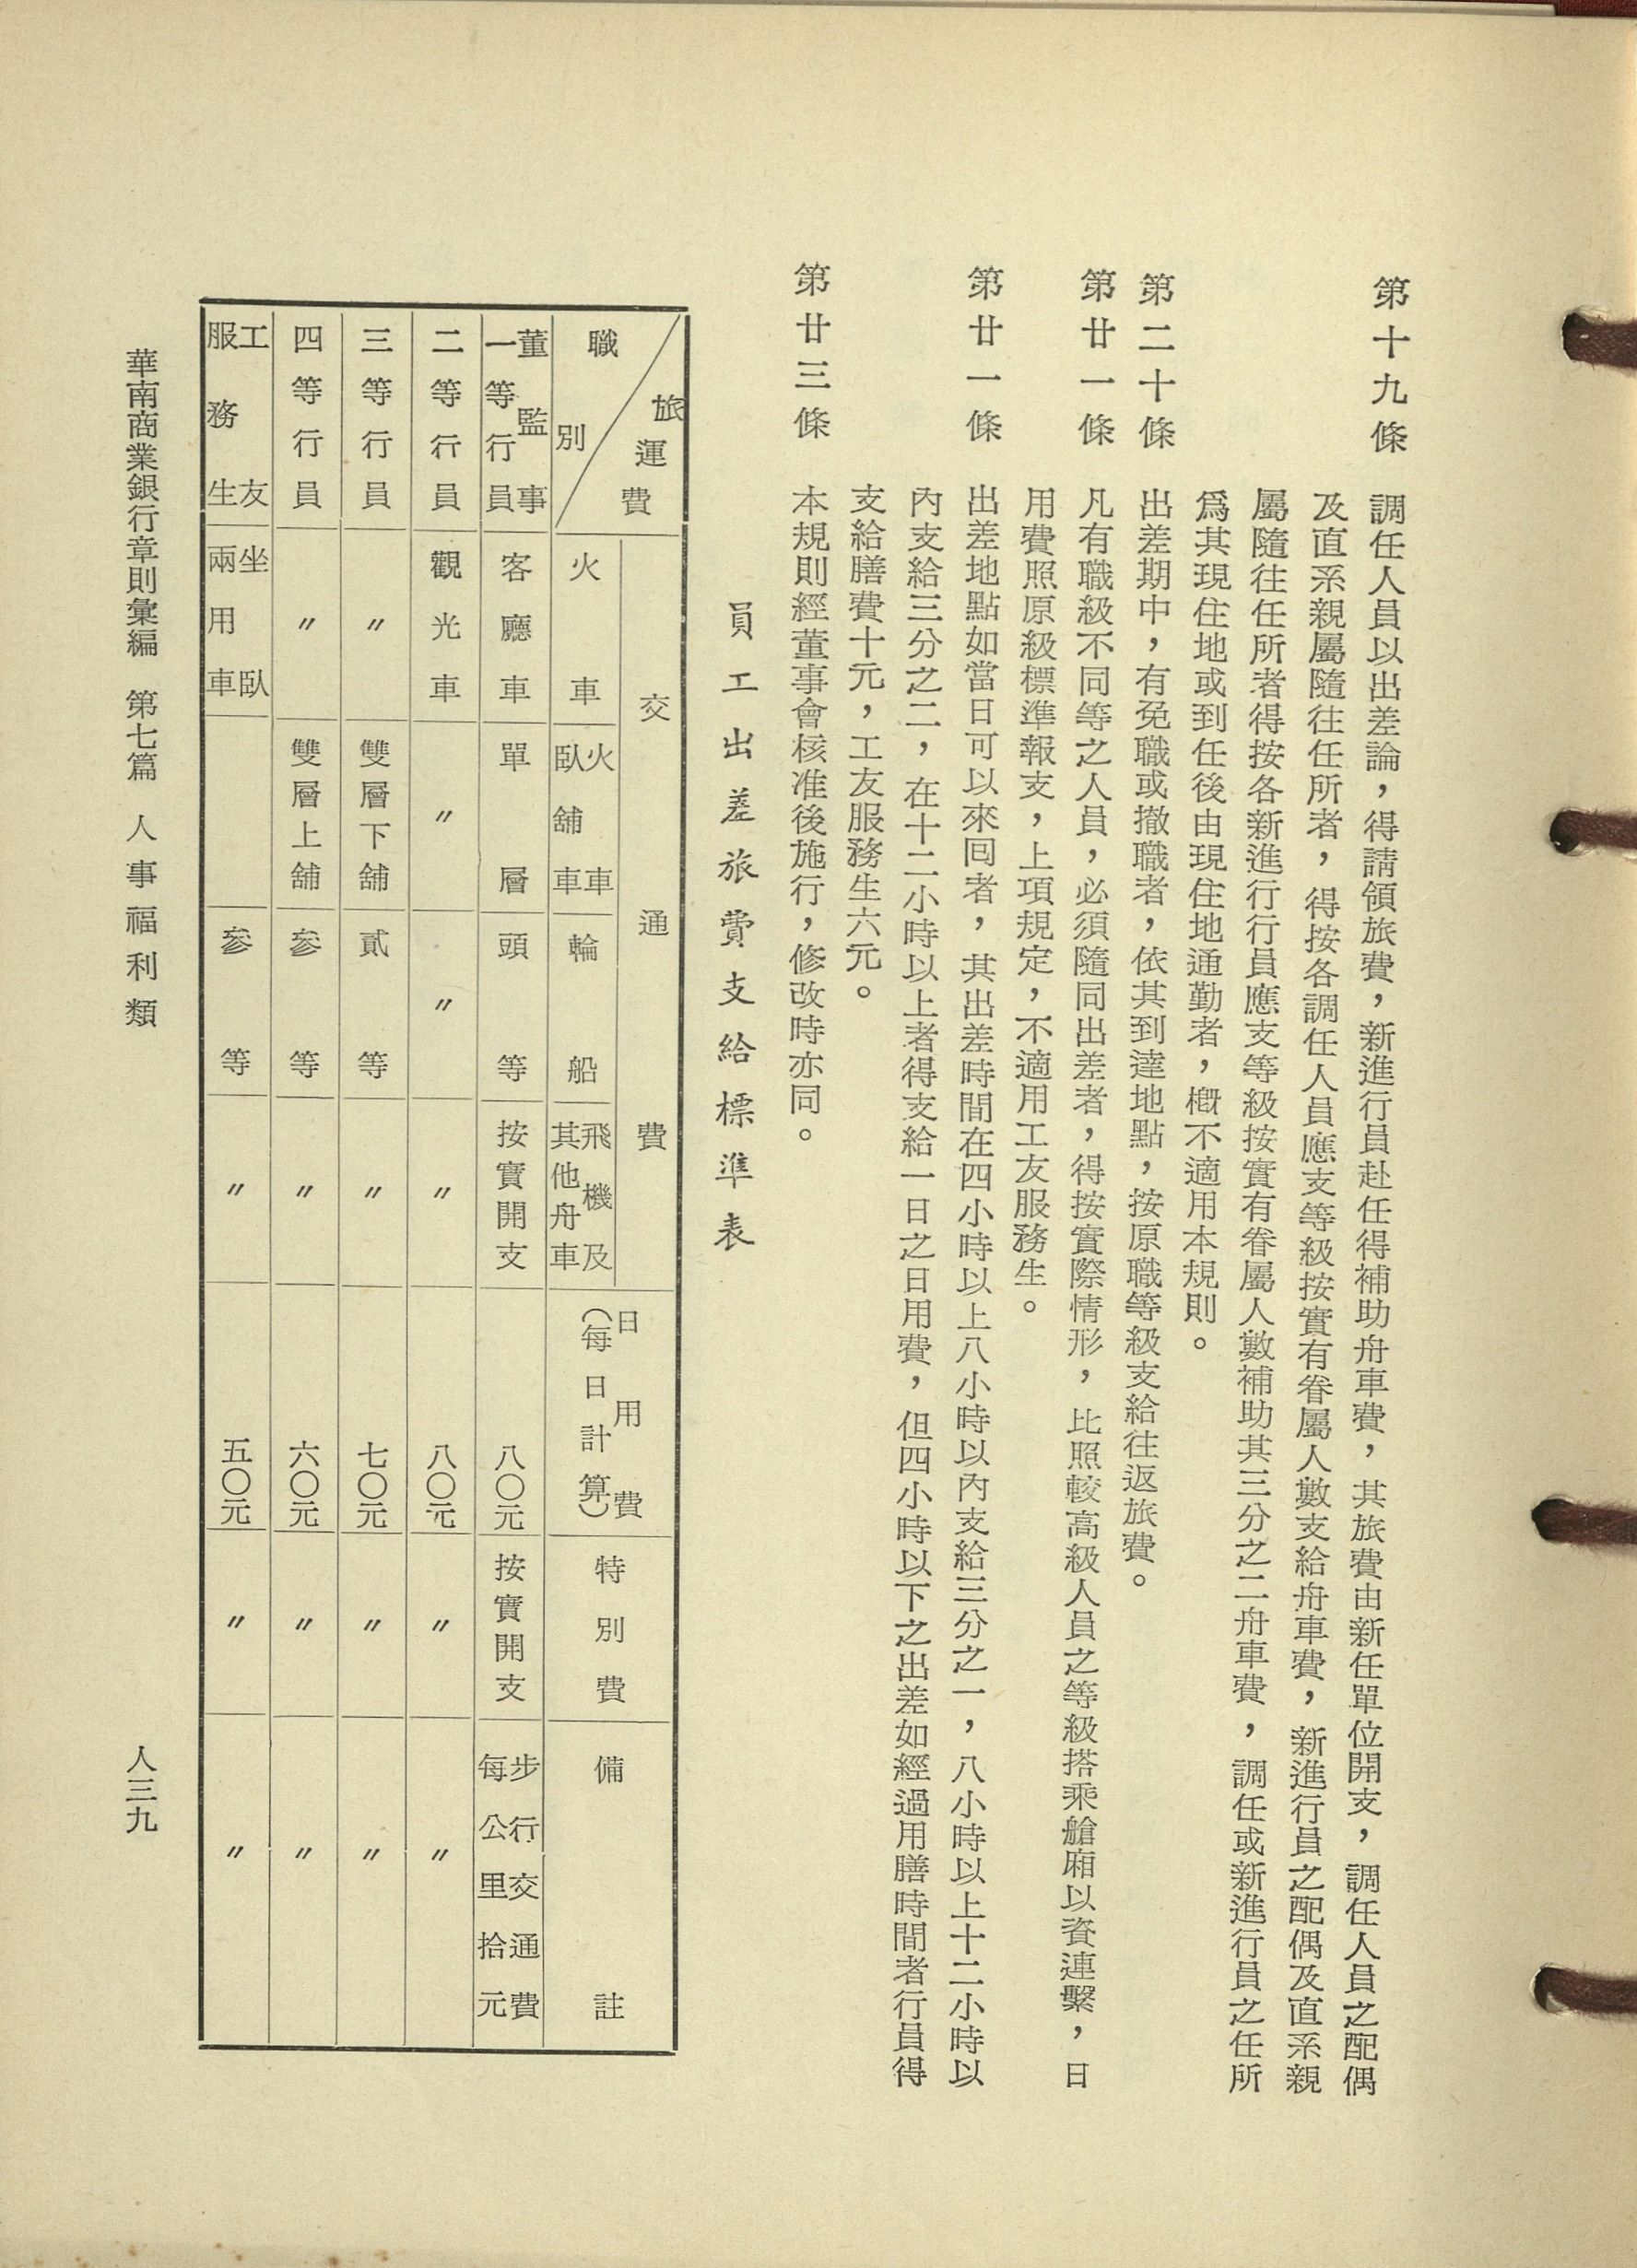 第十九條　調任人員以出差論，得請領旅費，新進行員赴任得補助舟車費，其旅費由新任單位開支，調任人員之配偶
及直系親屬隨往任所者，得按各調任人員應支等級按實有眷屬人數支給舟車費，新進行員之配偶及直系親
屬隨往任所者得按各新進行行員應支等級按實有眷屬人數補助其三分之二舟車費，調任或新進行員之任所
爲其現住地或到任後由現住地通勤者，槪不適用本規則。
第二十條　出差期中，有免職或撤職者，依其到達地點，按原職等級支給往返旅費。
第廿一條　凡有職級不同等之人員，必須隨同出差者，得按實際情形，比照較高級人員之等級搭乘艙廂以資連繫，日
用費照原級標準報支，上項規定，不適用工友服務生。
第廿一條　出差地點如當日可以來囘者，其出差時間在四小時以上八小時以內支給三分之一，八小時以上十二小時以
內支給三分之二，在十二小時以上者得支給一日之日用費，但四小時以下之出差如經過用膳時間者行員得
支給膳費十元，工友服務生六元。
第廿三條　本規則經董事會核准後施行，修改時亦同。
員工出差旅費支給標準表
旅運費　職別　交通費　日用費（每日計算）　特別費　備註
火車　火車臥舖車　輪船　飛機及其他舟車
董監事一等行員　客廳車　單層　頭等　按實開支　八〇元　按實開支　步行交通費每公里拾元
二等行員　觀光車　〃　〃　〃　八〇元　〃　〃
三等行員　〃　雙層下舖　貳等　〃　七〇元　〃　〃
四等行員　〃　雙層上舖　叁等　〃　六〇元　〃　〃
工友服務生　坐臥兩用車　叁等　〃　五〇元　〃　〃
華南商業銀行章則彙編　第七篇　人事福利類　人三九